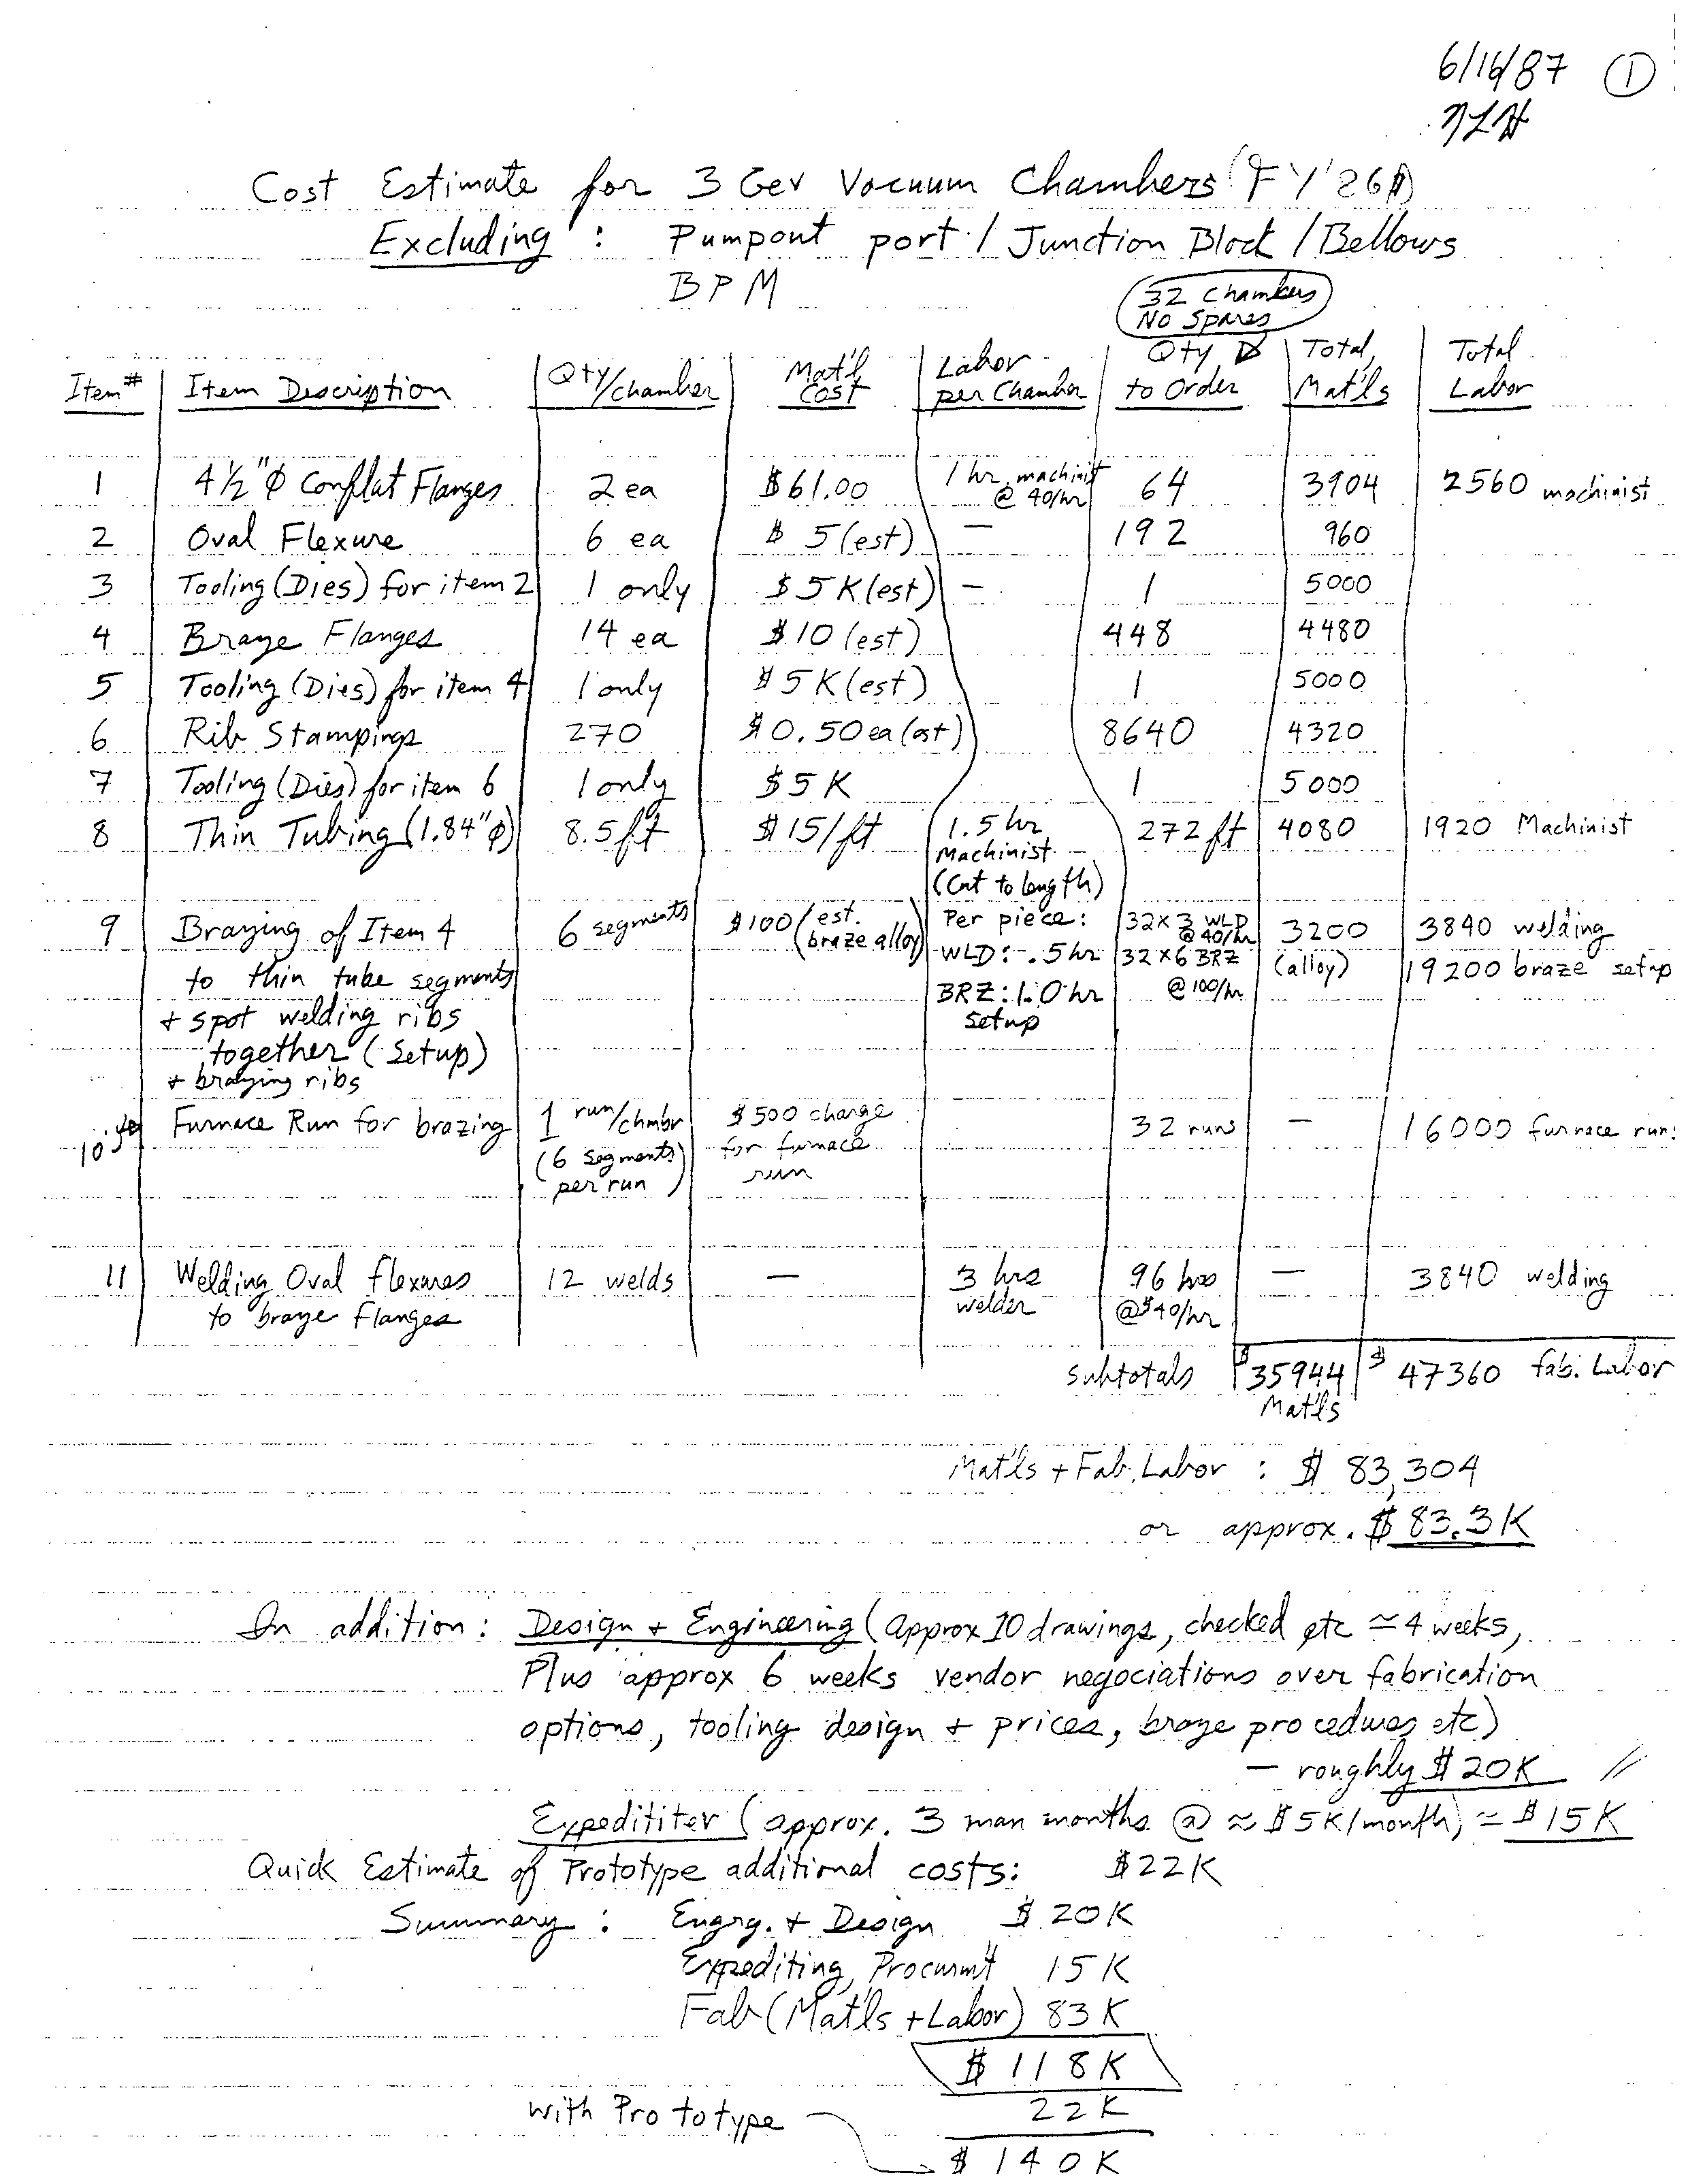 6/16/87 ①
Cost Estimate for 3 Gev Vacuum Chambers (FY'86$)
Excluding : Pumpout port / Junction Block / Bellows
BPM
32 Chambers
No Spares
Item # | Item Description | Qty/chamber | Mat'l Cost | Labor per Chamber | Qty to Order | Total Mat'ls | Total Labor
1 | 4½"Φ Conflat Flanges | 2 ea | $61.00 | 1 hr machinist @ 40/hr | 64 | 3904 | 2560 machinist
2 | Oval Flexure | 6 ea | $ 5 (est) | — | 192 | 960
3 | Tooling (Dies) for item 2 | 1 only | $ 5K (est) | — | 1 | 5000
4 | Braze Flanges | 14 ea | $10 (est) | 448 | 4480
5 | Tooling (Dies) for item 4 | 1 only | $ 5K (est) | 1 | 5000
6 | Rib Stampings | 270 | $0.50 ea (est) | 8640 | 4320
7 | Tooling (Dies) for item 6 | 1 only | $5K | 1 | 5000
8 | Thin Tubing (1.84"Φ) | 8.5 ft | $15/ft | 1.5 hr Machinist — (Cut to length) | 272 ft | 4080 | 1920 Machinist
9 | Brazing of Item 4 | 6 segments | $100 (est. braze alloy) | Per piece: | 32x3 WLD @ 40/hr | 3200 | 3840 welding
to thin tube segments | WLD: .5 hr | 32x6 BRZ @ 100/hr | (alloy) | 19200 braze setup
+ spot welding ribs | BRZ: 1.0 hr setup
together (Setup)
+ brazing ribs
10 | Furnace Run for brazing | 1 run/chmbr | $500 charge for furnace run | 32 runs | — | 16000 furnace runs
(6 segments per run)
11 | Welding Oval flexures | 12 welds | — | 3 hrs welder | 96 hrs @$40/hr | — | 3840 welding
to braze flanges
subtotals | $35944 Mat'ls | $ 47360 fab. Labor
Mat'ls + Fab. Labor : $ 83,304
or approx. $ 83.3K
In addition : Design + Engineering (Approx 10 drawings, checked etc ≃ 4 weeks,
Plus approx 6 weeks vendor negociations over fabrication
options, tooling design + prices, braze procedures etc)
— roughly $ 20K //
Expedititer (approx. 3 man months @ ≈ $5K/month) ≃ $15K
Quick Estimate of Prototype additional costs: $22K
Summary : Engrg. + Design $ 20K
Expediting, Procurm't 15K
Fab (Mat'ls + Labor) 83K
$ 118K
with Prototype 22K
$ 140K